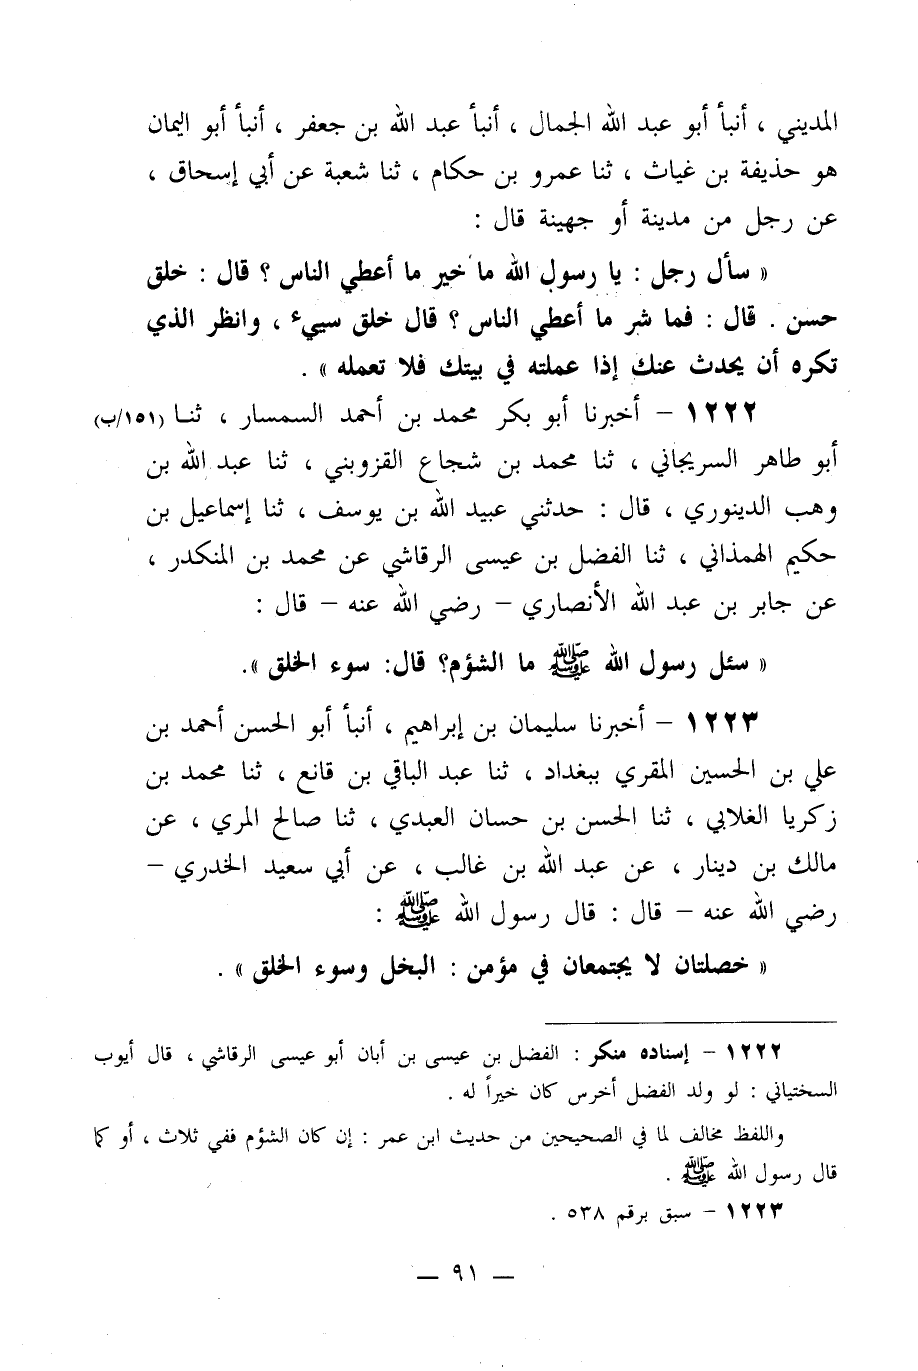 المديني ، أنبأ أبو عبد الله الجمال ، أنبأ عبد الله بن جعفر ، أنبأ أبو اليمان
هو حذيفة بن غياث ، ثنا عمرو بن حكام ، ثنا شعبة عن أبي إسحاق ،
عن رجل من مدينة أو جهينة قال :
« سأل رجل : يا رسول الله ما خير ما أعطي الناس ؟ قال : خلق
حسن . قال : فما شر ما أعطي الناس ؟ قال خلق سييء ، وانظر الذي
تكره أن يحدث عنك إذا عملته في بيتك فلا تعمله » .
١٢٢٢ – أخبرنا أبو بكر محمد بن أحمد السمسار ، ثنا (١٥١/ب)
أبو طاهر السريجاني ، ثنا محمد بن شجاع القزويني ، ثنا عبد الله بن
وهب الدينوري ، قال : حدثني عبيد الله بن يوسف ، ثنا إسماعيل بن
حكيم الهمذاني ، ثنا الفضل بن عيسى الرقاشي عن محمد بن المنكدر ،
عن جابر بن عبد الله الأنصاري – رضي الله عنه – قال :
« سئل رسول الله ﷺ ما الشؤم؟ قال: سوء الخلق ».
١٢٢٣ – أخبرنا سليمان بن إبراهيم ، أنبأ أبو الحسن أحمد بن
علي بن الحسين المقري ببغداد ، ثنا عبد الباقي بن قانع ، ثنا محمد بن
زكريا الغلابي ، ثنا الحسن بن حسان العبدي ، ثنا صالح المري ، عن
مالك بن دينار ، عن عبد الله بن غالب ، عن أبي سعيد الخدري –
رضي الله عنه – قال : قال رسول الله ﷺ :
« خصلتان لا يجتمعان في مؤمن : البخل وسوء الخلق » .
١٢٢٢ – إسناده منكر : الفضل بن عيسى بن أبان أبو عيسى الرقاشي ، قال أيوب
السختياني : لو ولد الفضل أخرس كان خيراً له .
واللفظ مخالف لما في الصحيحين من حديث ابن عمر : إن كان الشؤم ففي ثلاث ، أو كما
قال رسول الله ﷺ .
١٢٢٣ – سبق برقم ٥٣٨ .
– ٩١ –